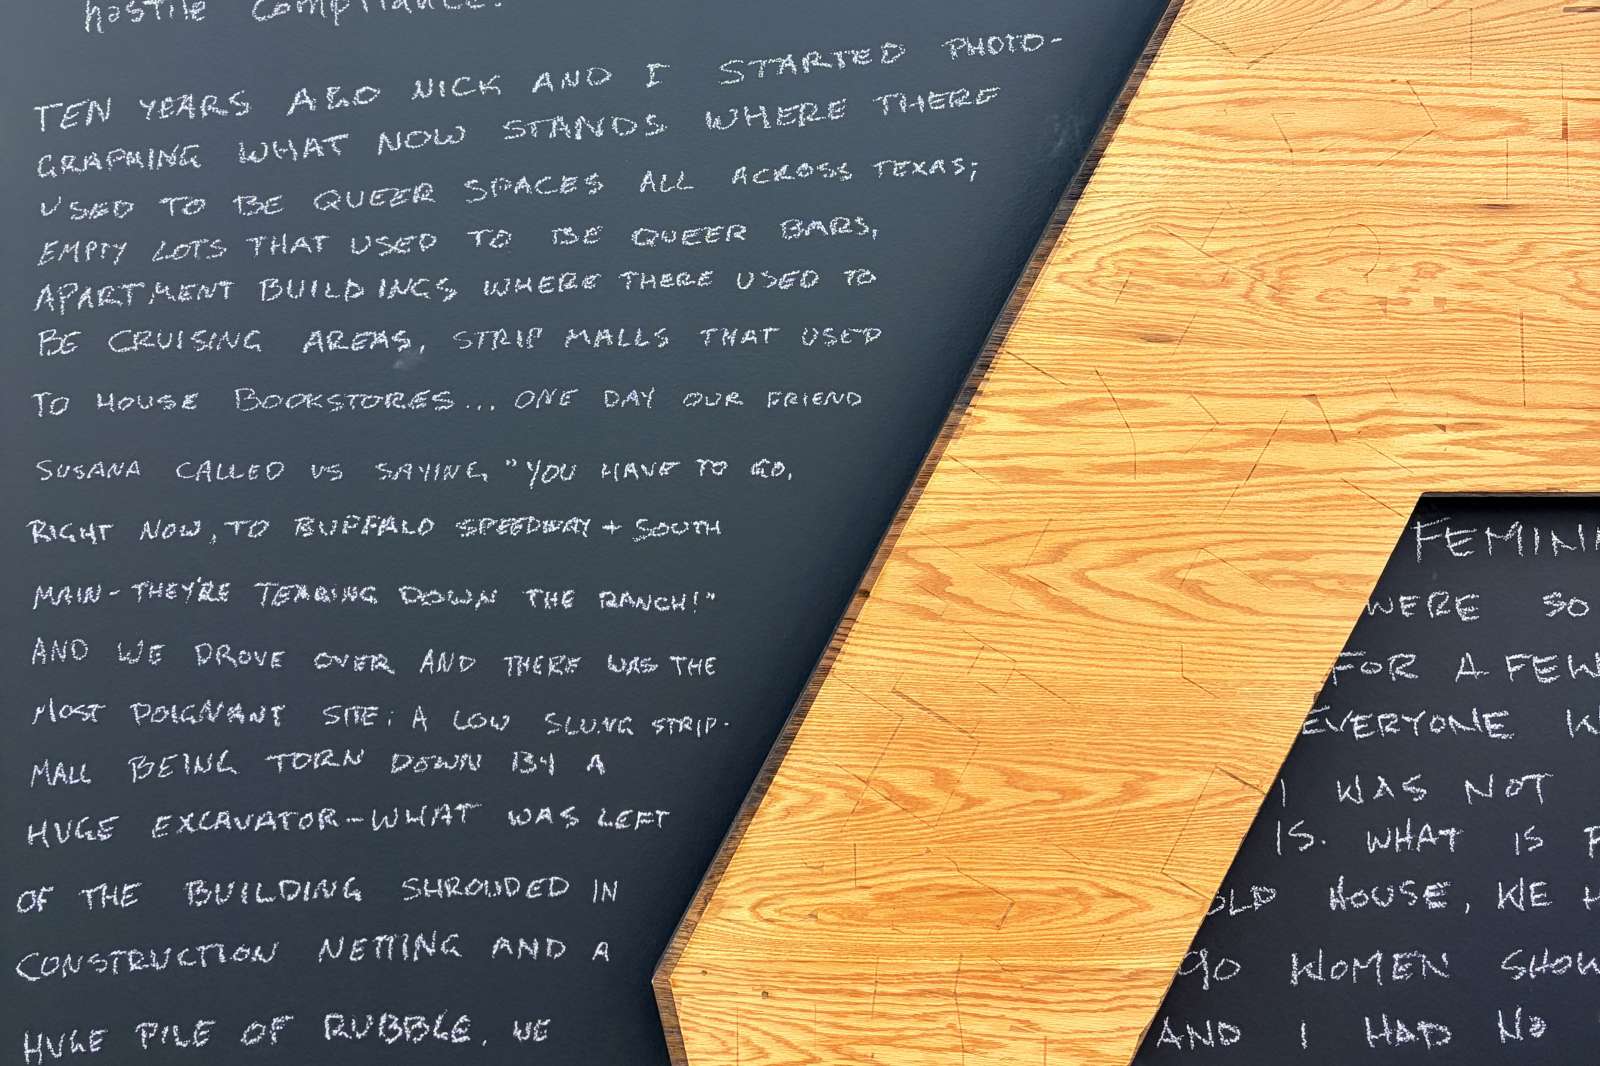 hostile compliance.
TEN YEARS AGO NICK AND I STARTED PHOTO-
GRAPHING WHAT NOW STANDS WHERE THERE
USED TO BE QUEER SPACES ALL ACROSS TEXAS;
EMPTY LOTS THAT USED TO BE QUEER BARS,
APARTMENT BUILDINGS WHERE THERE USED TO
BE CRUISING AREAS, STRIP MALLS THAT USED
TO HOUSE BOOKSTORES... ONE DAY OUR FRIEND
SUSANA CALLED US SAYING, "YOU HAVE TO GO,
RIGHT NOW, TO BUFFALO SPEEDWAY + SOUTH
MAIN - THEY'RE TEARING DOWN THE RANCH!"
AND WE DROVE OVER AND THERE WAS THE
MOST POIGNANT SITE: A LOW SLUNG STRIP-
MALL BEING TORN DOWN BY A
HUGE EXCAVATOR - WHAT WAS LEFT
OF THE BUILDING SHROUDED IN
CONSTRUCTION NETTING AND A
HUGE PILE OF RUBBLE. WE
FEMINI
WERE SO
FOR A FEW
EVERYONE
I WAS NOT
IS. WHAT IS
OLD HOUSE, WE
90 WOMEN SHOW
AND I HAD NO